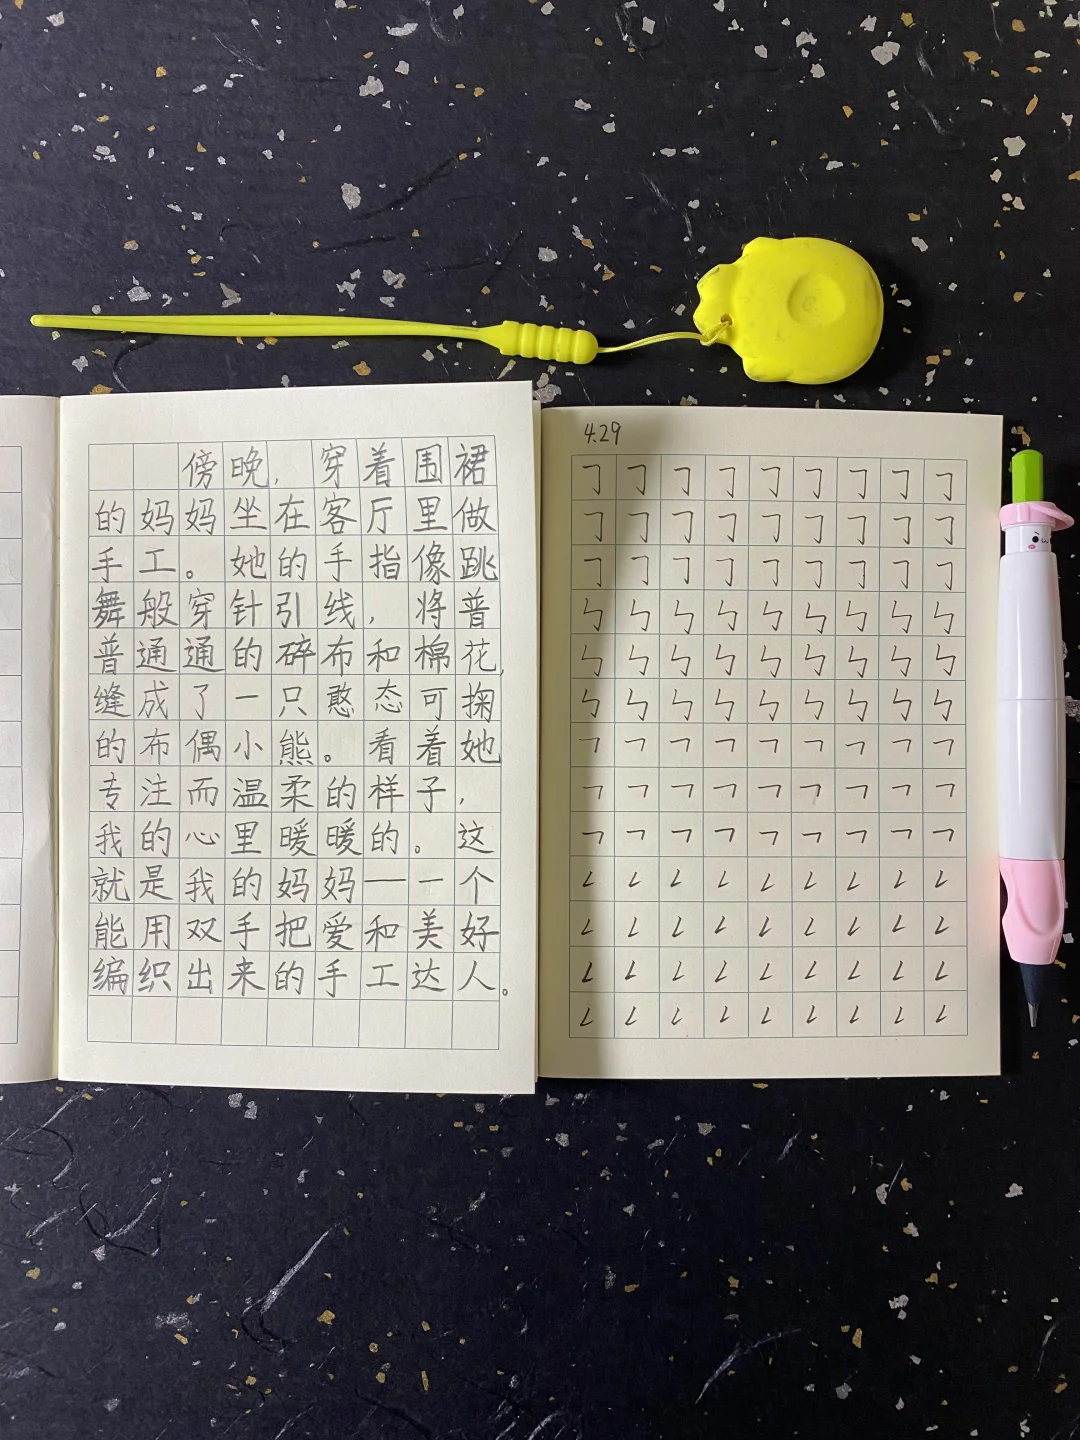 傍晚，穿着围裙
的妈妈坐在客厅里做
手工。她的手指像跳
舞般穿针引线，将普
普通通的碎布和棉花，
缝成了一只憨态可掬
的布偶小熊。看着她
专注而温柔的样子，
我的心里暖暖的。这
就是我的妈妈——一个
能用双手把爱和美好
编织出来的手工达人。
4.29